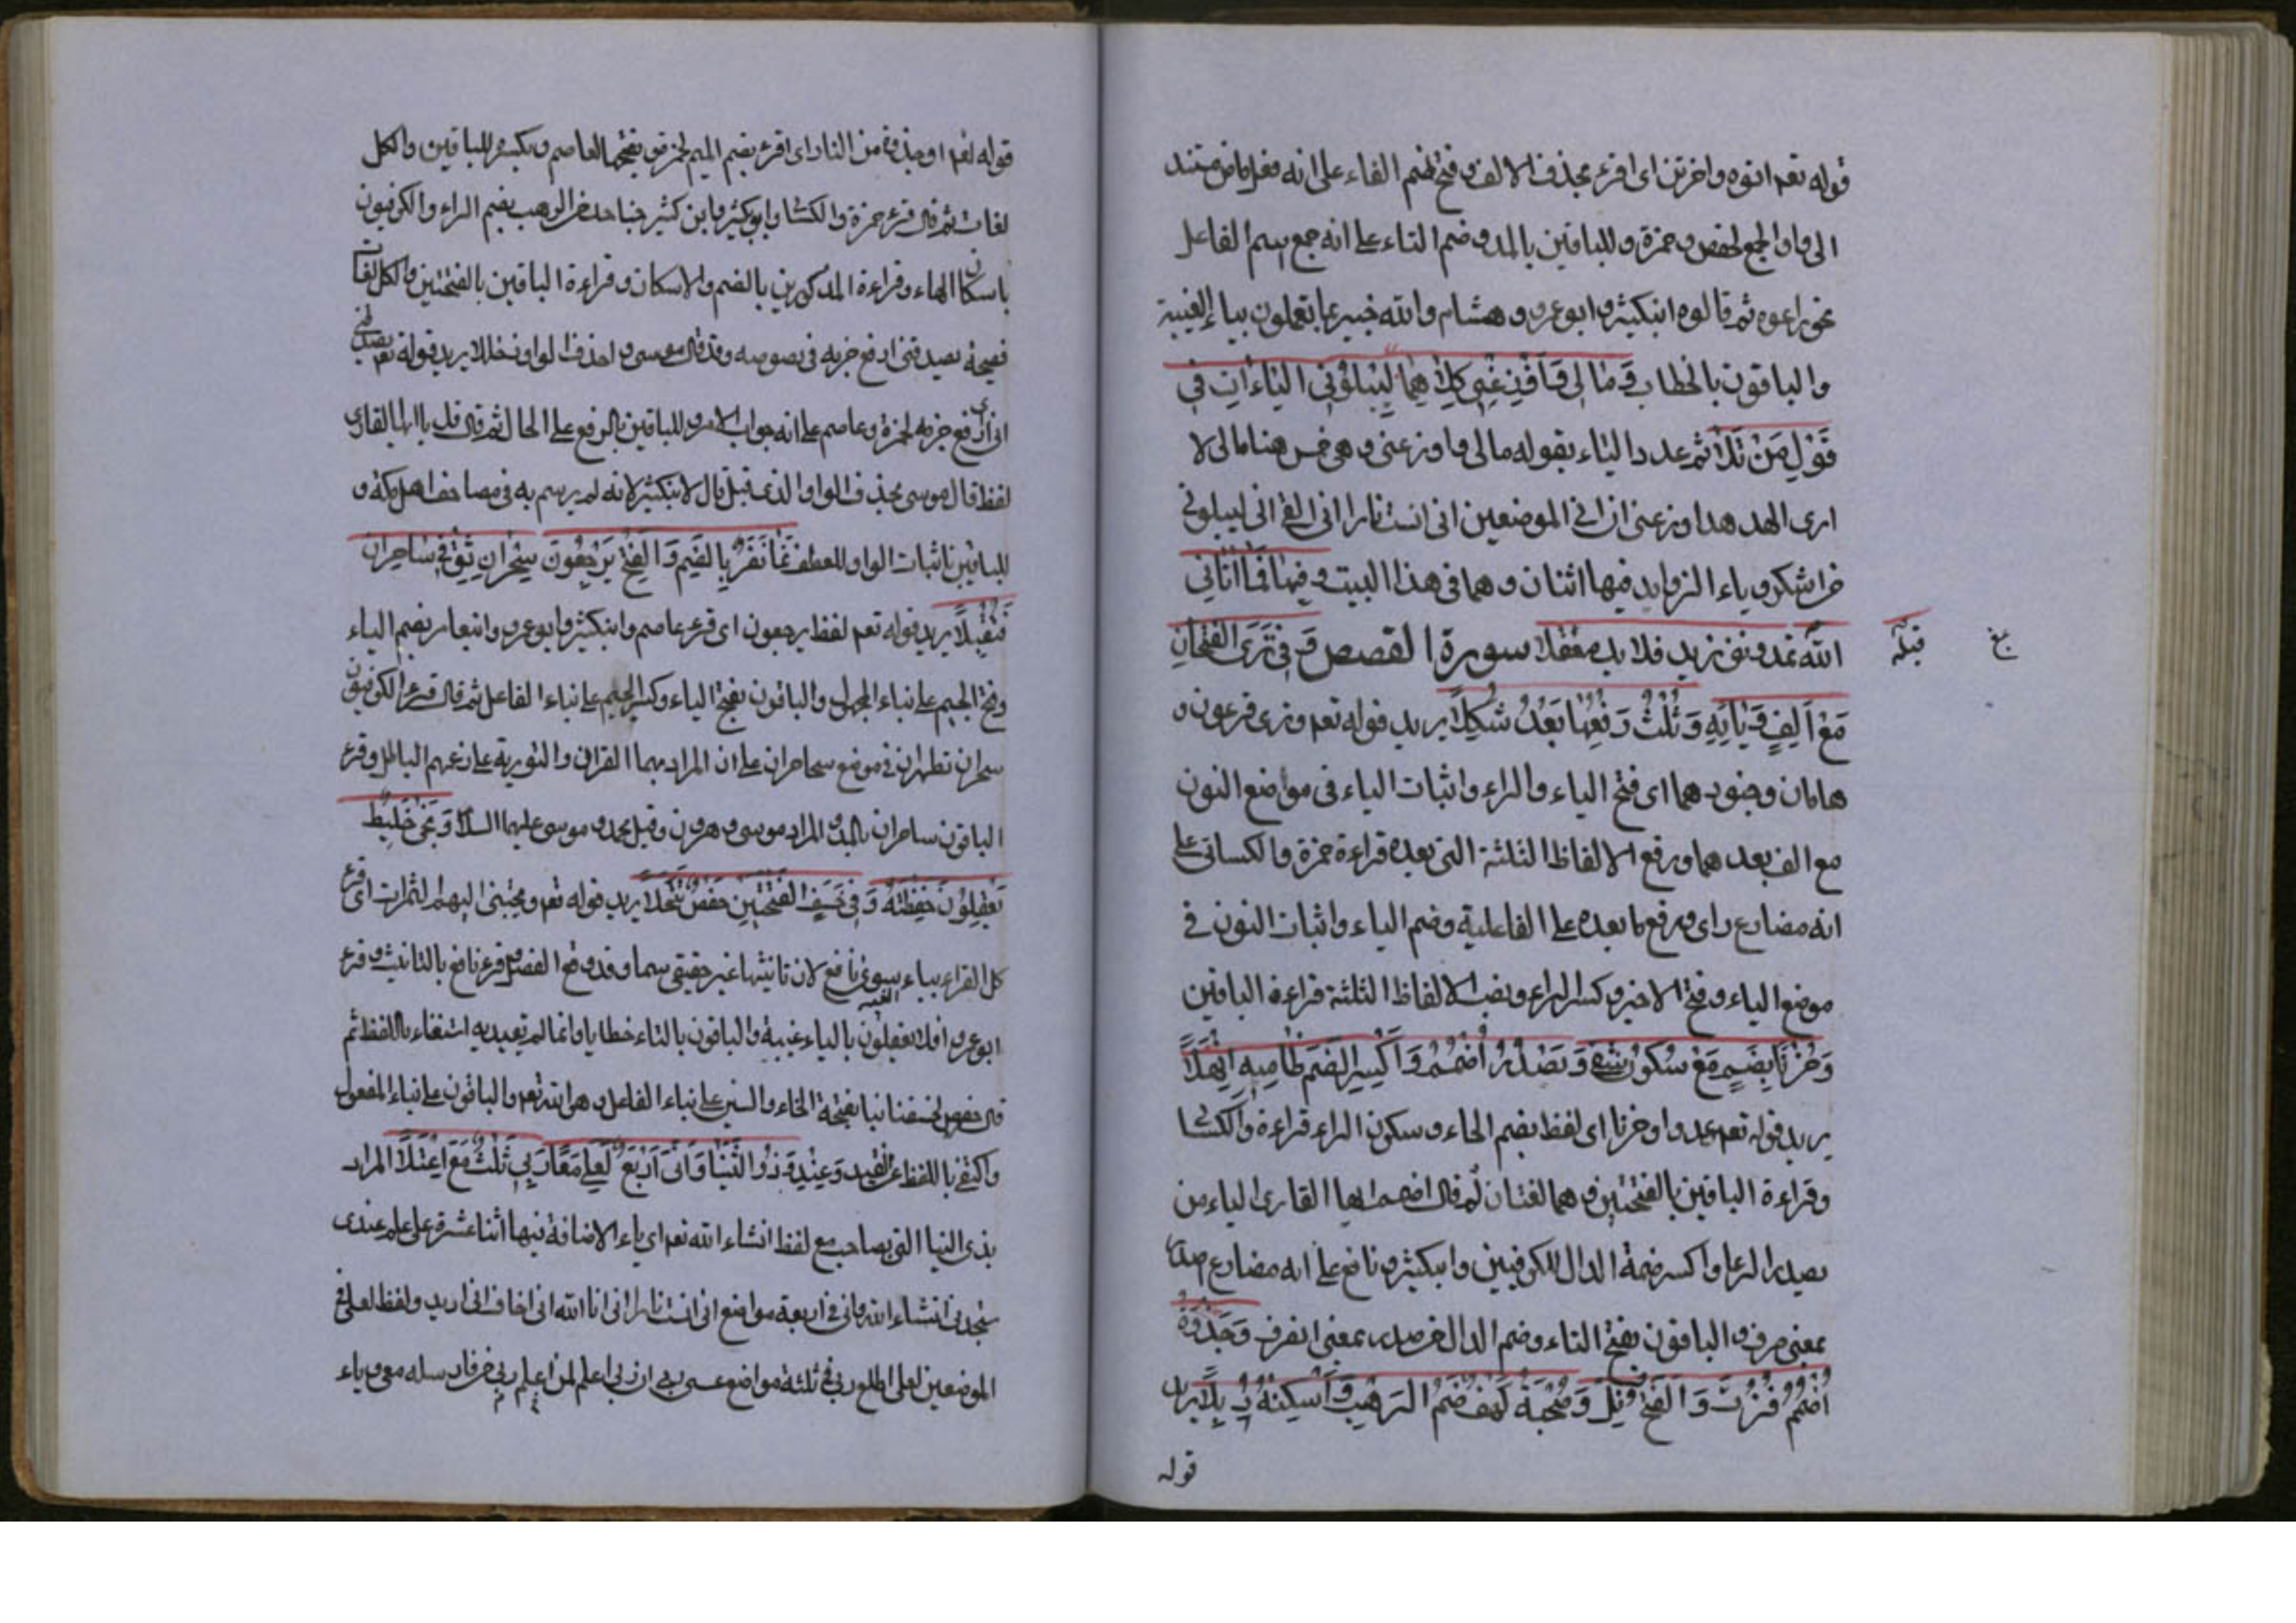 قوله تعم اتوه داخرين اى اقرء بحذف الالف وفتح ضم الفاء على انه فعل ماض مستند
الى واو الجمع لحفص وحمزة وللباقين بالمد وضم التاء على انه جمع اسم الفاعل
نحو راعوه ثم قالوه ابنكثير وابو عمرو وهشام والله خبير بما يعملون بياء الغيبة
والباقون بالخطاب وَمَا لِى وَاَوْزِعْنِى كِلَاهُمَا لِيَبْلُوَنِى الْيَاءَاتِ فِى
قَوْلِ مَنْ تَلَا ثم عدد الياء بقوله مالى واوزعنى وهى خمس هنا مالى لا
ارى الهدهد اوزعنى ان فى الموضعين انى انست نارا انى القى الى ليبلونى
ءاشكر وياء الزوايد فيها اثنان وهما فى هذا البيت وفيها فَمَا اٰتَانِى
اللّٰه تمدونن زيد فلا يد مغفلا سورة القصص وَفِى نُرِىَ الْفَتْحَانِ
قبله
مَعْ اَلِفٍ وَيَائِهِ وَثُلْثُ رَفْعُهَا بَعْدُ شُكِّلَا يريد قوله تعم ونرى فرعون و
هامان وجنودهما اى فتح الياء والراء واثبات الياء فى مواضع النون
مع الف بعدهما ورفع الالفاظ الثلثة التى بعده قراءة حمزة والكسائى على
انه مضارع راى ورفع ما بعده على الفاعلية وضم الياء واثبات النون فى
موضع الياء وفتح الاخير وكسر الراء ونصب الالفاظ الثلثة قراءة الباقين
وَحُزْنًا بِضَمٍّ مَعْ سُكُونٍ شَفَى وَيَصْدُرُ اضْمُمْ وَاكْسِرِ الضَّمَّ ظَامِيهِ اَنْهَلَا
يريد قوله تعم عدوا وحزنا اى لفظ بضم الحاء وسكون الراء قراءة والكسا
وقراءة الباقين بالفتحتين وهما لغتان ثم قال اضمم ايها القارى الياء من
يصدر الرعا واكسر ضمة الدال للكوفيين وابنكثير ونافع على انه مضارع اصدر
بمعنى صرف والباقون بفتح التاء وضم الدال من صدر بمعنى انصرف وَجَذْوَةٍ
اضْمُمْ فُزْتَ وَالْفَتْحَ نَلْ وَصُحْبَةٌ كَهْفُ ضَمِّ الرَّهْبِ وَاَسْكِنْهُ ذُبَّلَا يريد
قوله
قوله تعم او جذوة من النار اى اقرء بضم الميم لحمزة وبفتحها لعاصم وبكسر للباقين والكل
لغات ثم قال قرء حمزة والكسا وابوبكر وابن كثير جناحك من الرهب بضم الراء والكوفيون
باسكان الهاء وقراءة المذكورين بالضم والاسكان وقراءة الباقين بالفتحتين والكل لغات
فصيحة يصدقنى ارفع جزمه فى نصوصه وقد قال موسى واحذف الواو دخللا يريد قوله تعم يصدقنى
انى ارفع جزمه لحمزة وعاصم على انه جواب الامر وللباقين بالرفع على الحال ثم قال قل يا ايها القارى
لفظ قال موسى بحذف الواو الذى قبل قال لابنكثير لانه لم يرسم به فى مصاحف اهل مكة و
للباقين باثبات الواو للعطف نَمَا نَفَرٌ بِالضَّمِّ وَالْفَتْحِ يَرْجِعُونَ سِحْرَانِ ثِقْ فِى سَاحِرَانِ
فَتُقْبَلَا يريد قوله تعم لفظ يرجعون اى قرء عاصم وابنكثير وابو عمرو وابنعامر بضم الياء
وفتح الجيم على بناء المجهول والباقون بفتح الياء وكسر الجيم على بناء الفاعل ثم قال قرء الكوفيون
سحران تظاهرا فى موضع ساحران على ان المراد بهما القران والتورية على زعمهم الباطل وقرء
الباقون ساحران بالمد والمراد موسى وهرون وقيل محمد وموسى عليهما السلا وَيُجْبَى خَلِيطٌ
يَعْقِلُونَ حَفِظْتُهُ وَفِى خُسِفَ الْفَتْحَتَيْنِ حَفْصٌ تَنَخَّلَا يريد قوله تعم ويجبى اليه ثمرات اى قرء
كل القراء بياء الغيبة سوى نافع لان تانيثها غير حقيقى سيما وقد وقع الفصل وقرء نافع بالتانيث وقرء
ابو عمرو افلا يعقلون بالياء غيبة والباقون بالتاء خطابا وانما لم تقيد به استغناء باللفظ ثم
قال حفص لخسف بنا بفتحة الخاء والسين على بناء الفاعل وهو الله تعم والباقون على بناء المفعول
واكتفى باللفظ عن القيد وَعِنْدِى وَذُو الثُّنْيَا وَاِنِّى اَرْبَعٌ لَعَلِّى مَعًا رَبِّى ثَلَاثٌ مَعِى اعْتَلَا المراد
بذى الثنيا التى يصاحب مع لفظ انشاء الله تعم اى ياء الاضافة فيها اثنا عشرة على علم عندى
ستجدنى انشاء الله وانى فى اربعة مواضع انى انست نارا انى انا الله انى اخاف انى اريد ولفظ لعلى فى
الموضعين لعلى اطلع ربى فى ثلثة مواضع عسى ربى ان ربى اعلم لمن اعلم ربى من فارسله معى وياء